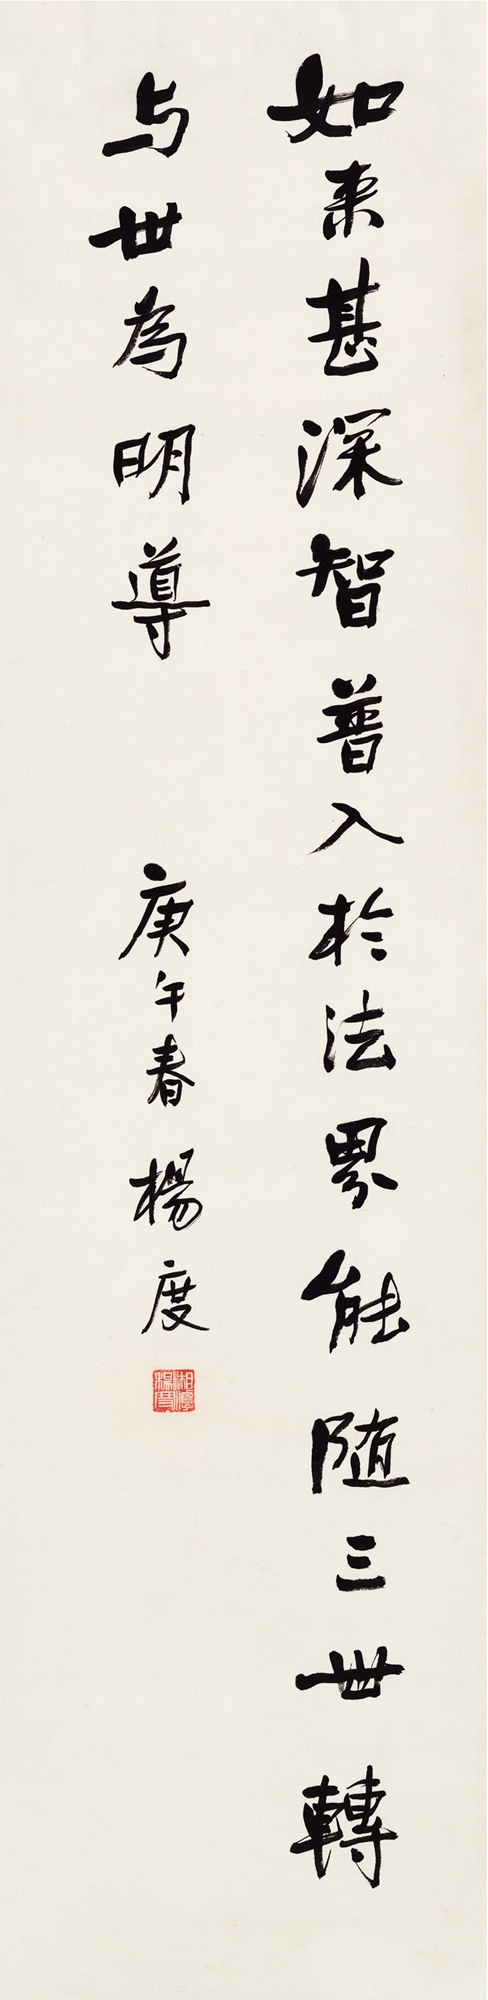 如来甚深智普入於法界能随三世轉
与世為明導
庚午春楊度
湘潭楊度